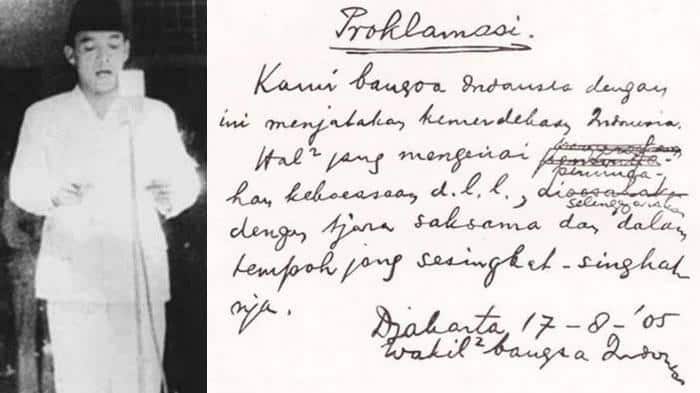 Proklamasi.
Kami bangsa Indonesia dengan
ini menjatakan kemerdekaan Indonesia.
Hal² jang mengenai
peminda-
han kekoeasaan d.l.l., dioesahakan
selenggarakan
dengan tjara saksama dan dalam
tempoh jang sesingkat-singkat
nja.
Djakarta, 17-8-'05
Wakil² bangsa Indonesia